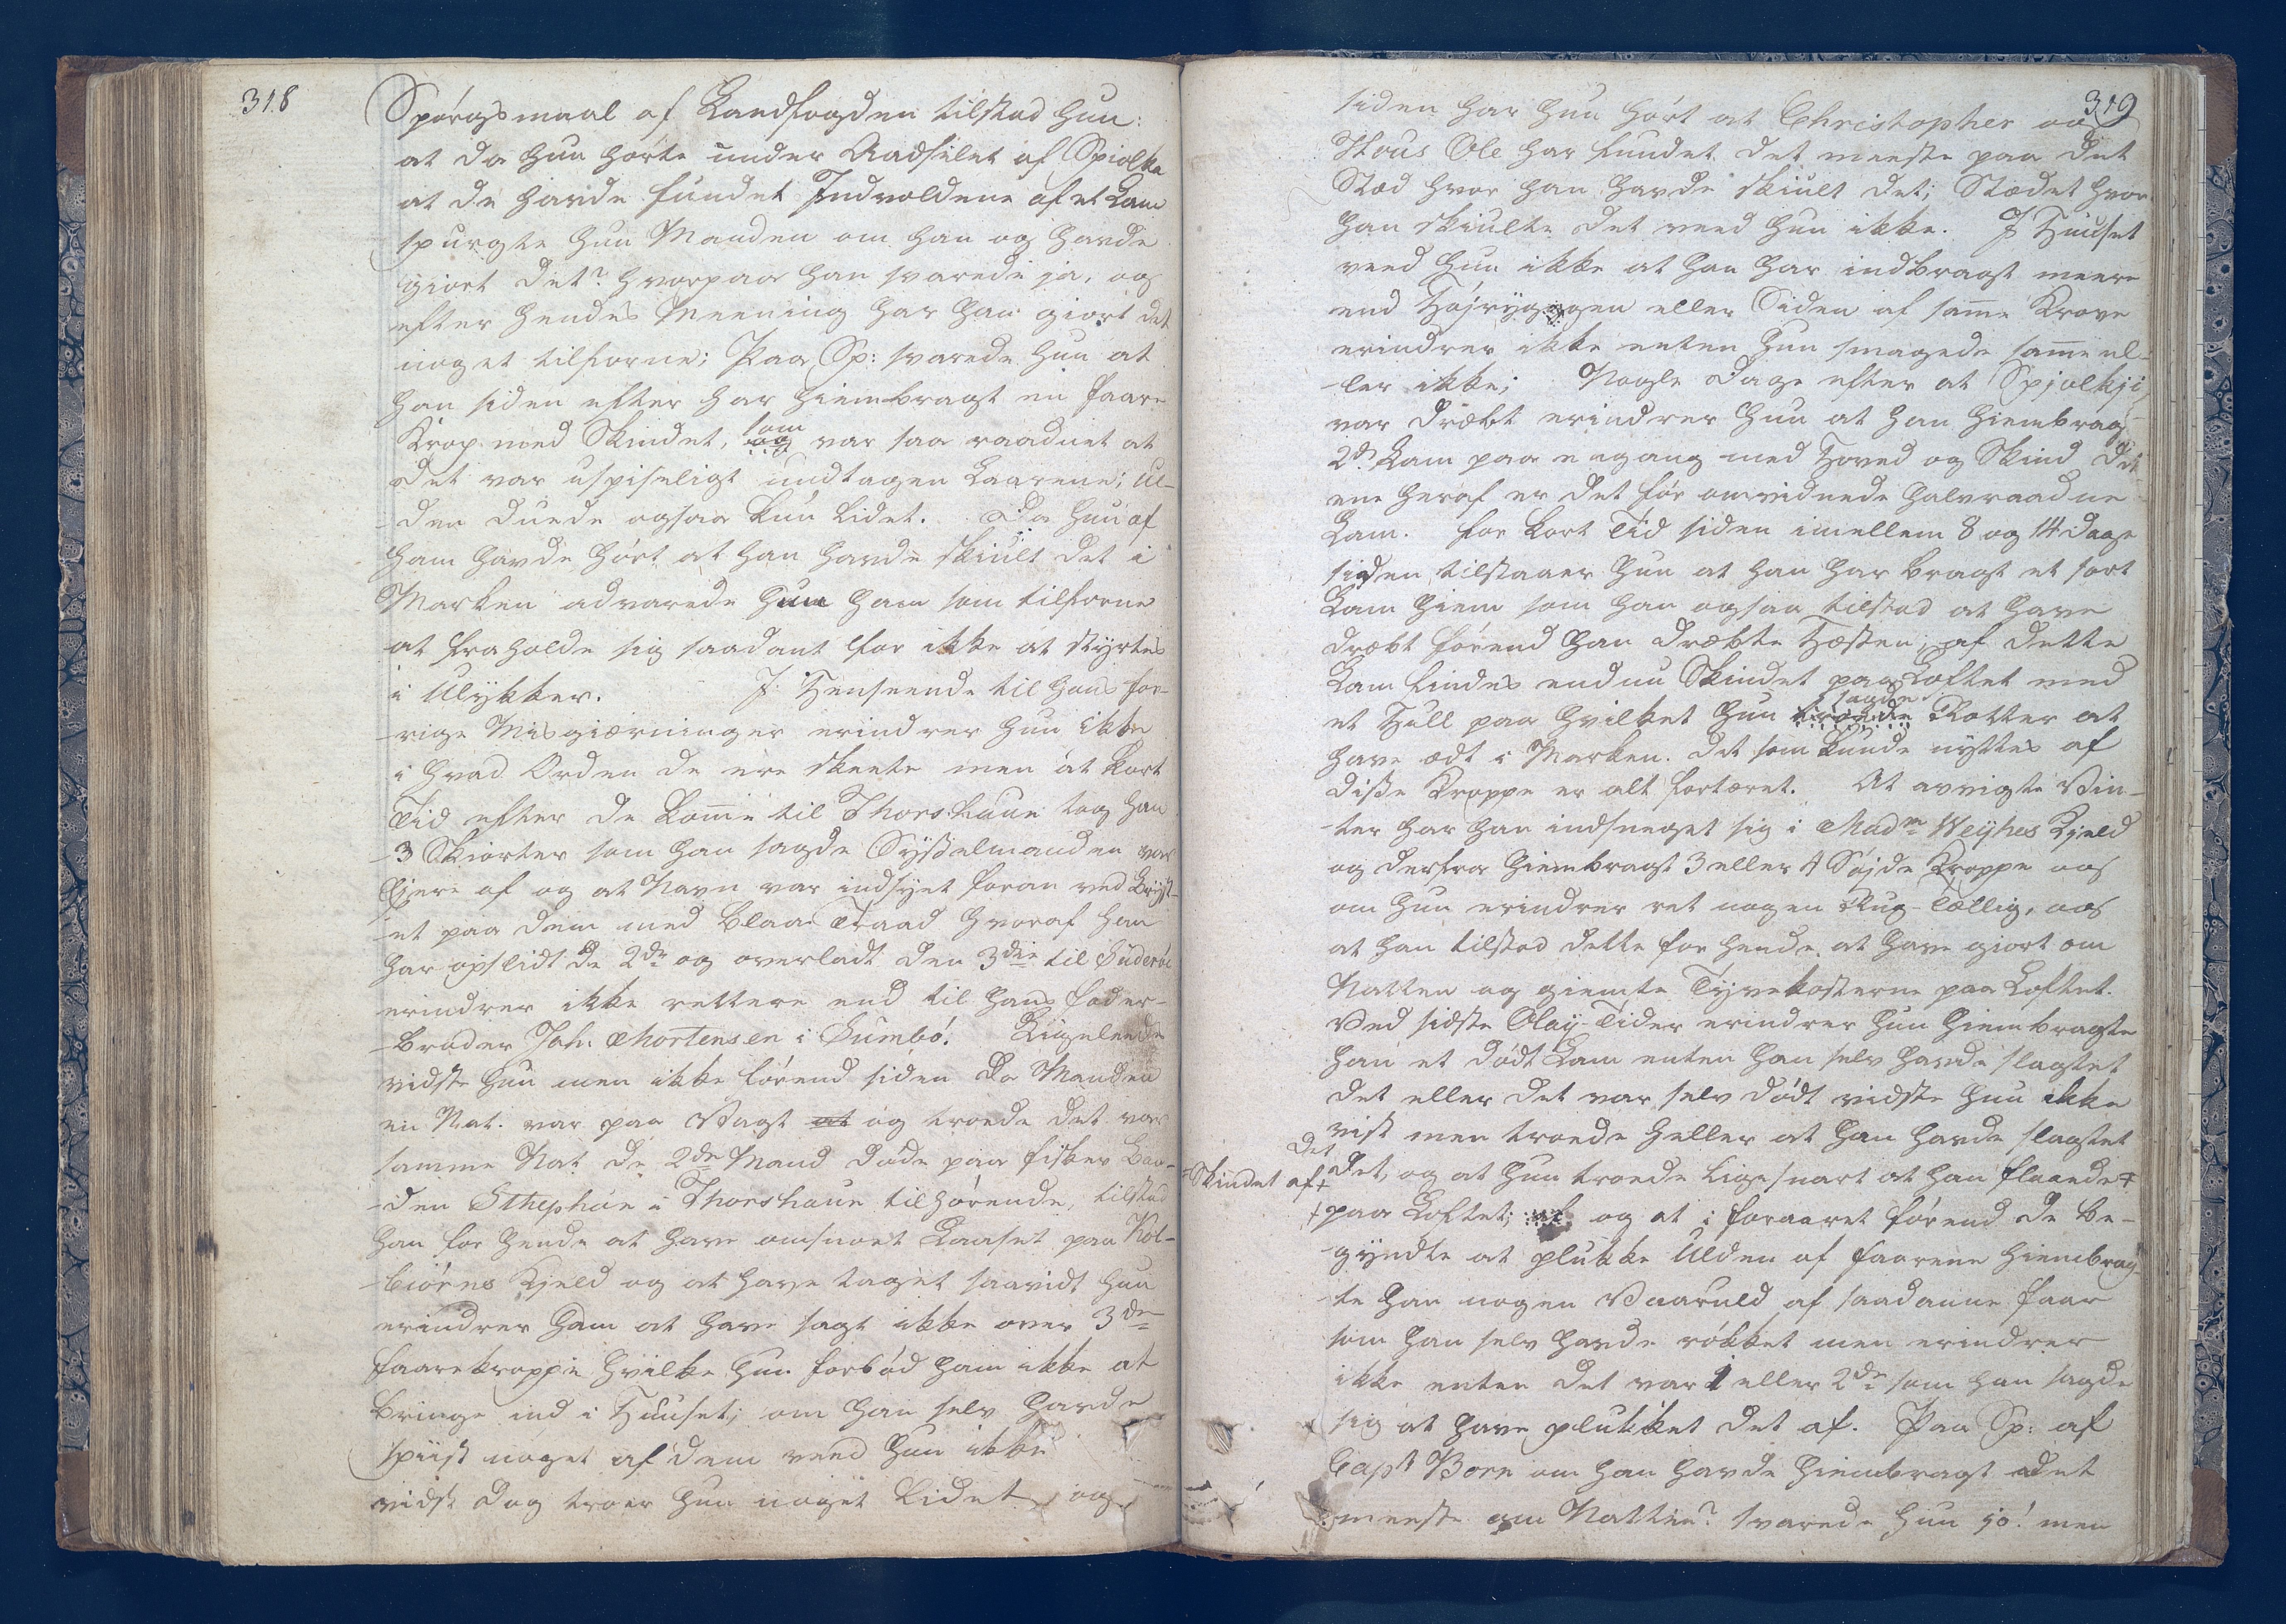 318
Spørgsmaal af Landfogden tilstod hun:
at da hun hørte under Aadsilet af Spiolka
at de havde fundet Indvoldene af et Lam
spurgte hun Manden om han og havde
giort det? hvorpaa han svarede ja, og
efter hendes Meening har han giort det
noget tilforne; Paa Sp: svarede hun at
han siden efter har hiembragt en faare
Krop med Skindet, som var saa raadnet at
det var uspiseligt undtagen Laarene; Ul-
-den duede ogsaa kun lidet. Da hun af
ham havde hørt at han havde skiult det i
Marken advarede hun ham som tilforne
at fraholde sig saadant for ikke at styrtes
i Ulykker. J Henseende til hans for-
-rige Misgiærninger erindrer hun ikke
i hvad Orden de ere skeete men at kort
Tid efter de komme til Thorshavn tog han
3 Skiorter som han sagde Sysselmanden var
Ejere af og at Navn var indsyet foran ved Bryst-
-et paa dem med blaae Traad hvoraf han
har opslidt de 2de og overladt den 3die til Suderøe
erindrer ikke rettere end til hans fader-
-broder Joh. Mortensen i Sumbø! Ligeleede
vidste hun men ikke førend siden da Manden
en Nat. var paa Vagt at og troede det var
samme Nat de 2de Mand døde paa fisker Baa-
-den Sthephan i Thorshavn tilhørende, tilstod
han for hende at have omsnoet Laaset paa Kol-
-biørns Kjeld og at have taget saavidt hun
erindrer ham at have sagt ikke over 3de
faarekroppe hvilke hun forbød ham ikke at
bringe ind i Huuset; om han selv havde
spiist noget af dem veed hun ikke
vidst dog troer hun noget lidet, og
319
siden har hun hørt at Christopher og
Hous Ole har fundet det meeste paa det
Stæd hvor han havde skiult det; Stædet hvor
han skiulte det veed hun ikke. J Huuset
veed hun ikke at han har indbragt meere
end Højryggen eller Siden af samme Krove
erindrer ikke enten hun smagede samme el-
-ler ikke; Nogle Dage efter at Spjolkji
var dræbt erindrer hun at han hiembrag
2de Lam paa engang med Hoved og Skind det
ene heraf er det før omvidnede halvraadne
Lam. for kort Tid siden imellem 8 og 14 dage
siden tilstaaer hun at han har bragt et sort
Lam hiem som han ogsaa tilstod at have
dræbt førend han dræbte Hæsten; af dette
Lam findes endnu Skindet paa Loftet med
et Hull paa hvilket hun sagde Rotter at
have ædt i Marken. det som kunde nyttes af
disse Kroppe er alt fortæret. At avvigte Vin-
-ter har han indsneget sig i Madm Weyhes Kjeld
og derfra hiembragt 3 eller 4 Søjde Kroppe og
om hun erindrer ret nogen Rug-Tællig, og
at han tilstod dette for hende at have giort om
Natten og giemte Tyvekosterne paa Loftet.
Ved sidste Olay-Tider erindrer hun hiembragte
han et dødt Lam enten han selv havde slagtet
det eller det var selv dødt vidste hun ikke
vist men troede heller at han havde slagtet
det
Skindet af+
det, og at hun troede ligesnart at han flaaede+
+paa Loftet; og at i foraaret førend de be-
-gyndte at plukke Ulden af faarene hiembrag-
-te han nogen Vaaruld af saadanne faar
som han selv havde røkket men erindrer
ikke enten det var 1 eller 2de som han sagde
sig at have plukket det af. Paa Sp: af
Capt Born om han havde hiembragt det
meeste om Natten? svarede hun jo! men